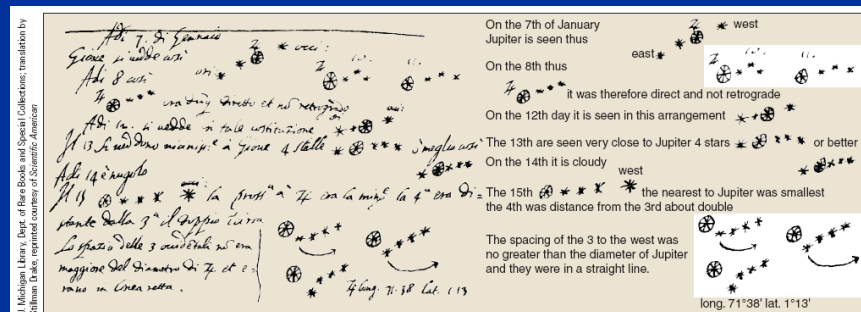 J. Michigan Library, Dept. of Rare Books and Special Collections; translation by
Stillman Drake, reprinted courtesy of Scientific American
Adi 7. di Gennaio
Giove si vedde così
occi:
Adi 8 così
ori
era diretto et no retrogrado
Adi 12. si vedde in tale costituzione
Il 13 si veddono à Giove 4 stelle
ò meglio così
Adi 14 è nugolo
Il 15
la à era la la 4ª era di=
stante dalla 3ª il doppio
Lo spazio delle 3 occidetali nō era
maggiore del diametro di et e=
rano in linea retta.
long. 71.38 lat. 1.13
On the 7th of January
Jupiter is seen thus
west
east
On the 8th thus
it was therefore direct and not retrograde
On the 12th day it is seen in this arrangement
The 13th are seen very close to Jupiter 4 stars
or better
On the 14th it is cloudy
west
The 15th
the nearest to Jupiter was smallest
the 4th was distance from the 3rd about double
The spacing of the 3 to the west was
no greater than the diameter of Jupiter
and they were in a straight line.
long. 71°38' lat. 1°13'